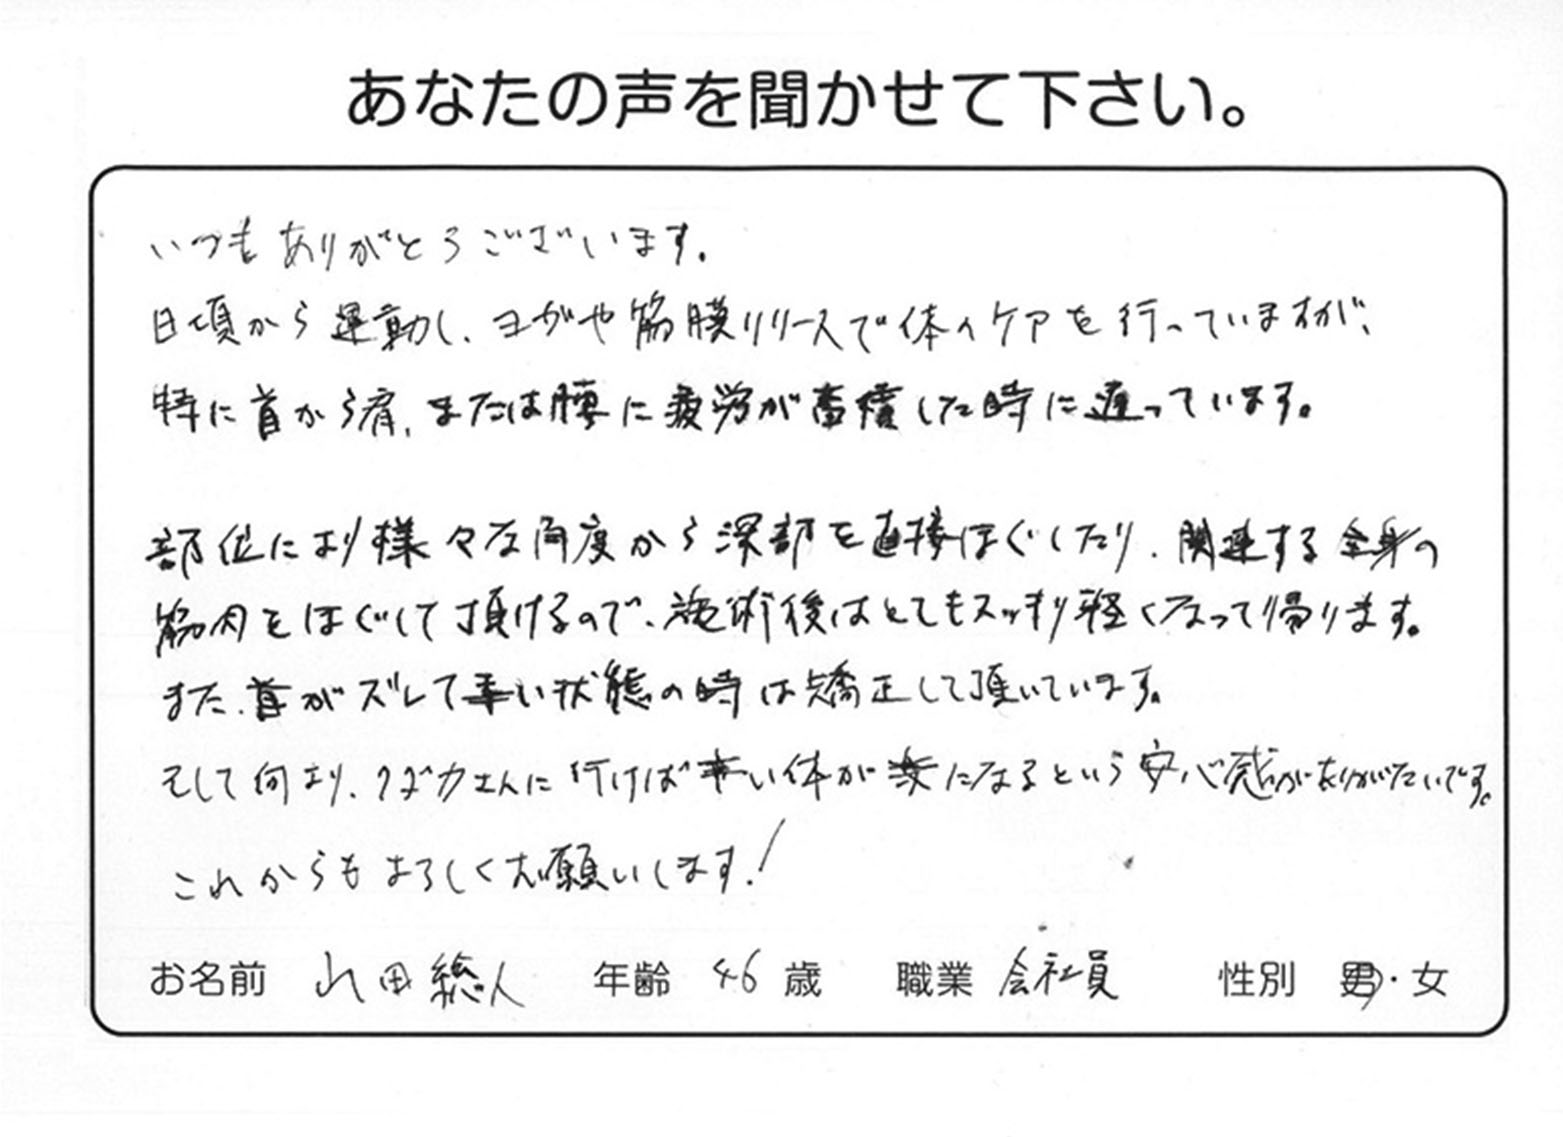 あなたの声を聞かせて下さい。
いつもありがとうございます。
日頃から運動し、ヨガや筋膜リリースで体のケアを行っていますが、
特に首から肩、または腰に疲労が蓄積した時に通っています。
部位により様々な角度から深部を直接ほぐしたり、関連する全身の
筋肉をほぐして頂けるので、施術後はとてもスッキリ軽くなって帰ります。
また、首がズレて辛い状態の時は矯正して頂いています。
そして何より、クボカさんに行けば辛い体が楽になるという安心感がありがたいです。
これからもよろしくお願いします!
お名前 山田総人 年齢 46 歳 職業 会社員 性別 男・女